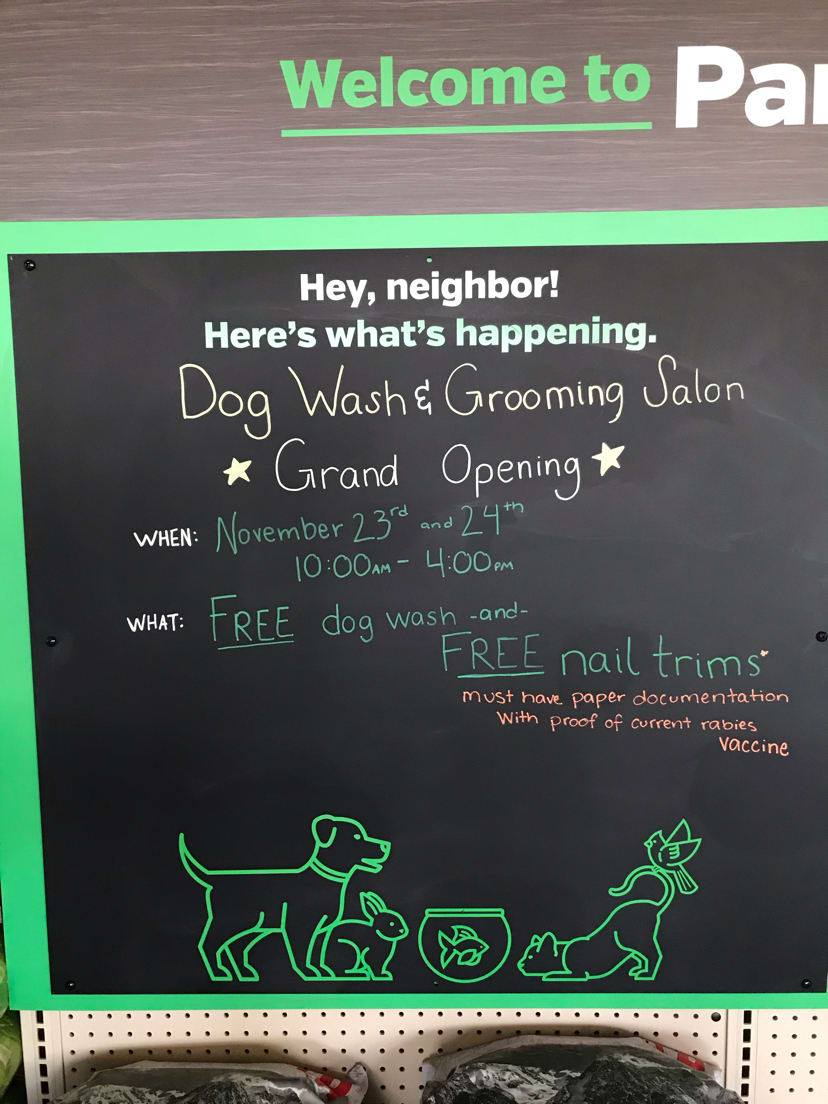 Welcome to
Hey, neighbor!
Here's what's happening.
Dog Wash & Grooming Salon
Grand Opening
WHEN: November 23rd and 24th
10:00AM - 4:00PM
WHAT: FREE dog wash -and-
FREE nail trims*
must have paper documentation
With proof of current rabies
vaccine